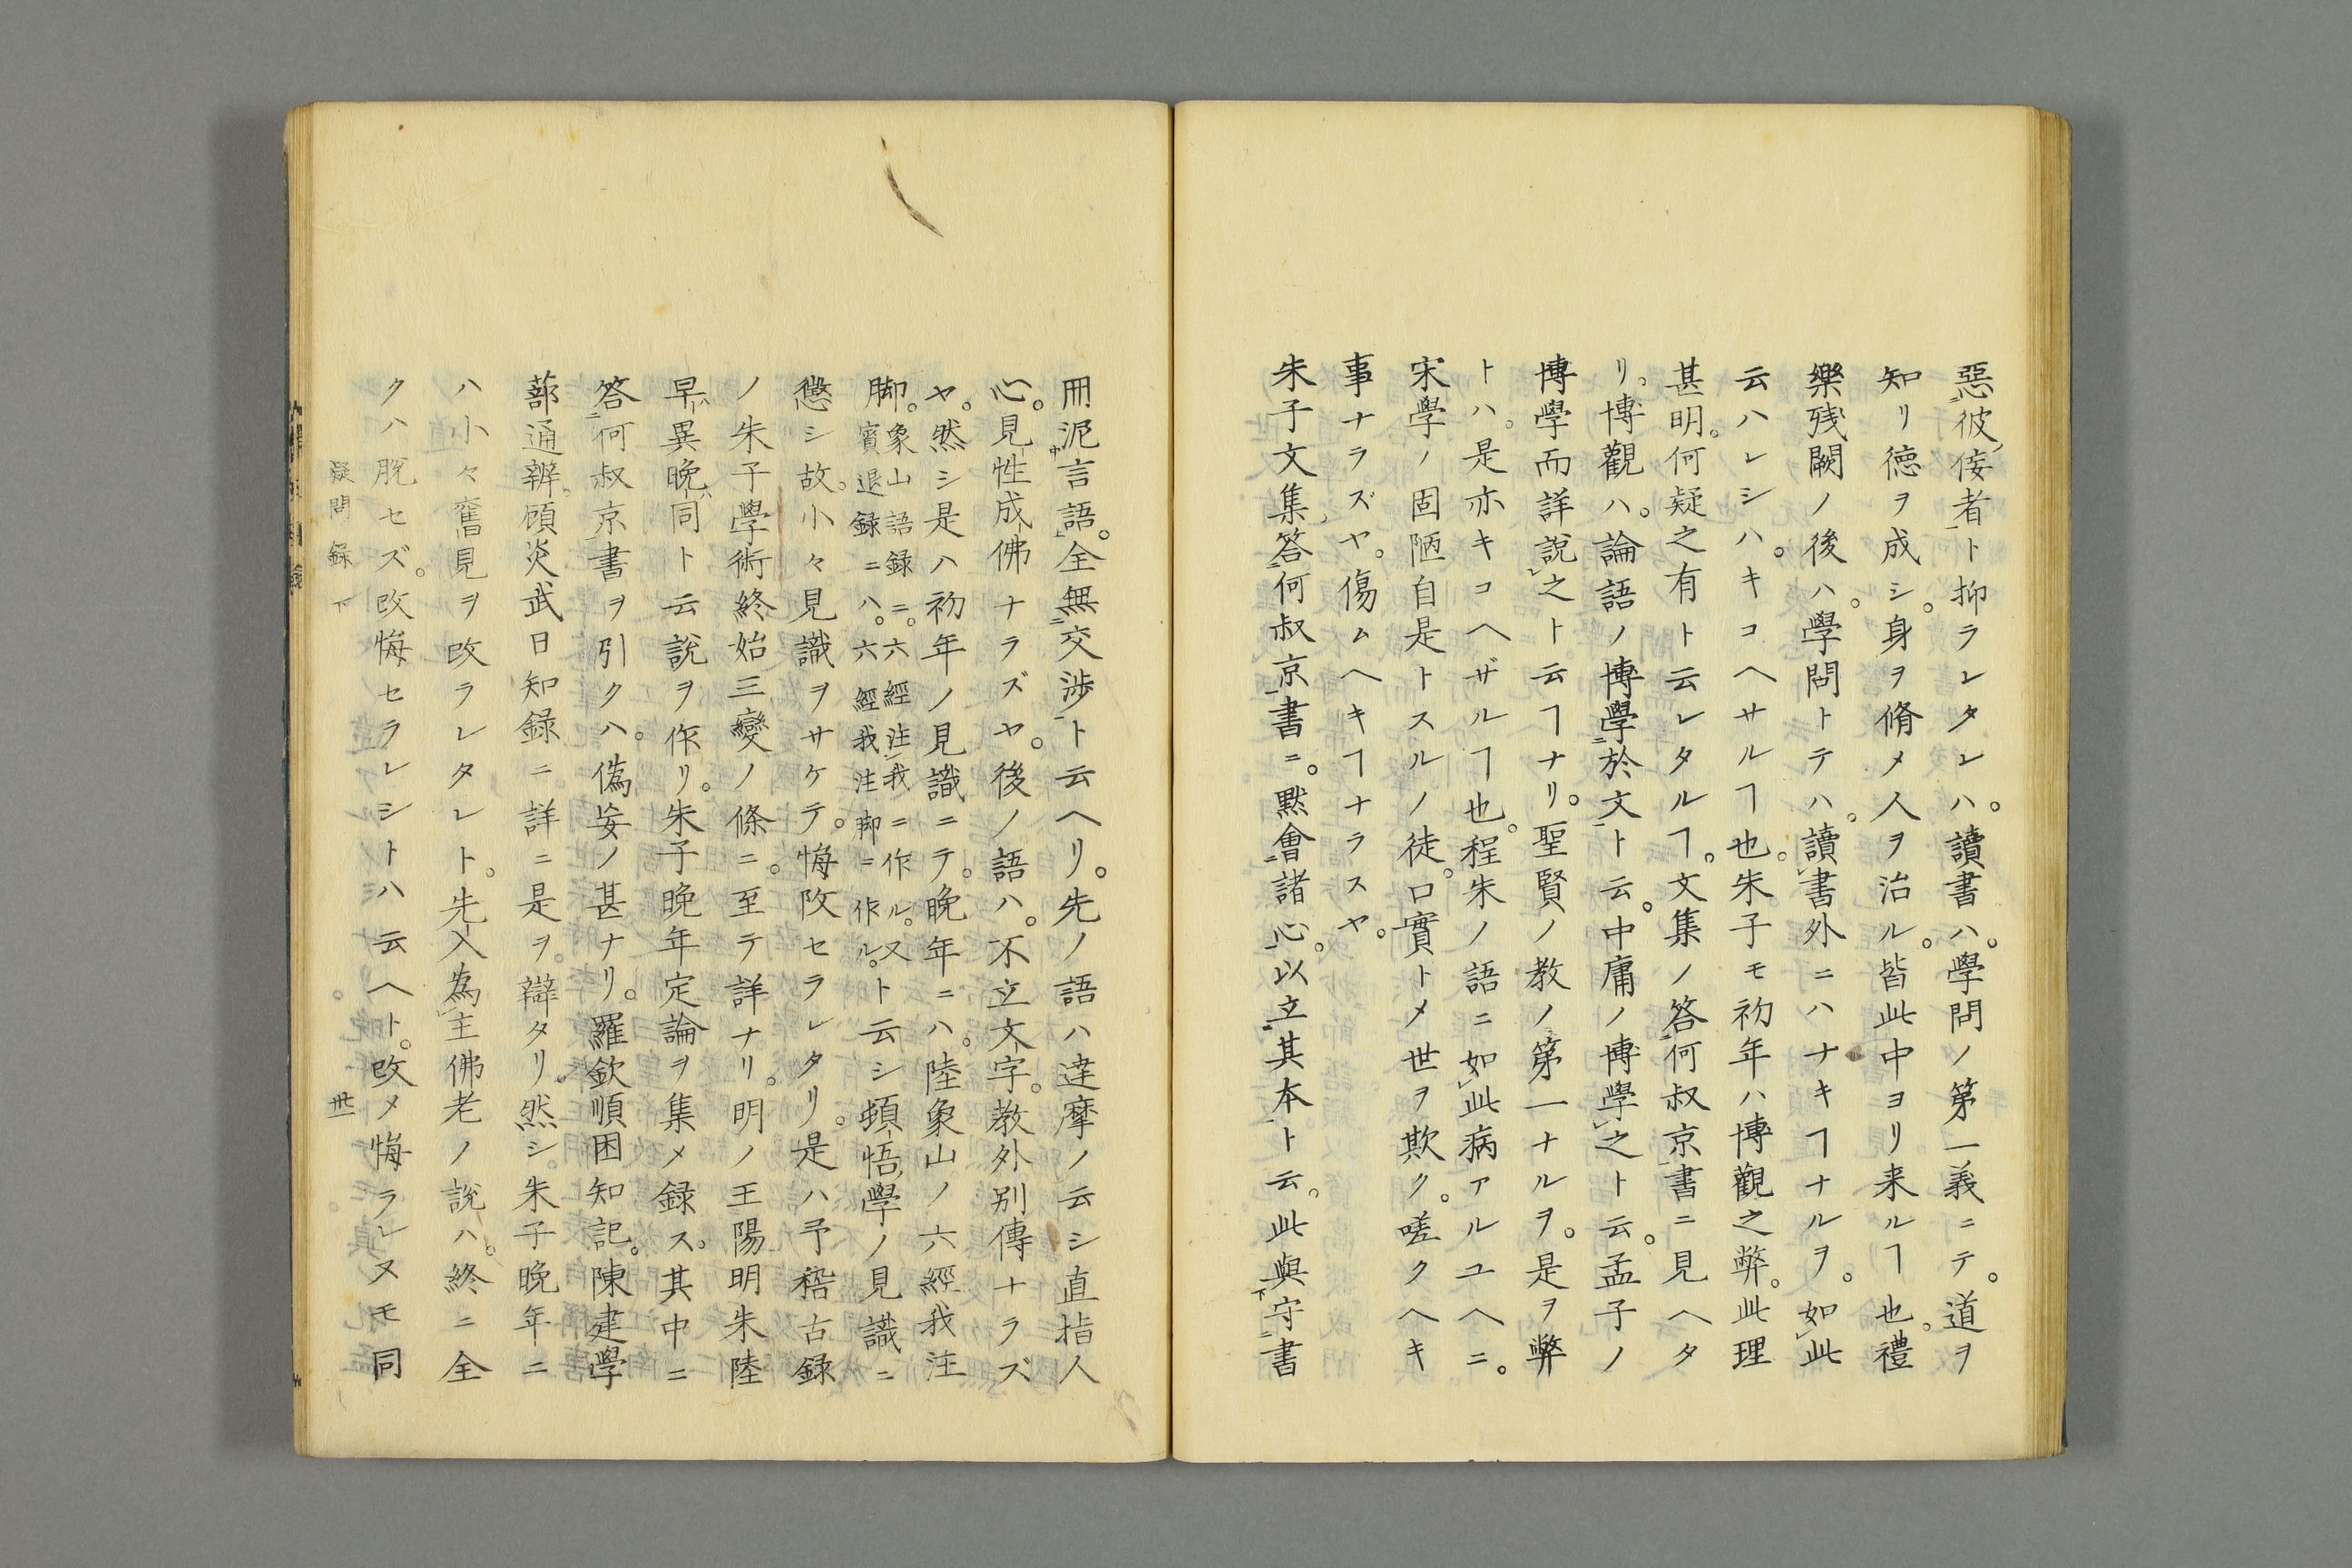 惡彼佞者ト抑ラレタレハ。讀書ハ。學問ノ第一義ニテ。道ヲ
知リ德ヲ成シ。身ヲ脩メ人ヲ治ル。皆此中ヨリ来ルヿ也。禮
樂残闕ノ後ハ。學問トテハ。讀書外ニハナキヿナルヲ。如此
云ハレシハ。キコヘサルヿ也。朱子モ初年ハ博觀之弊。此理
甚明。何疑之有ト云レタルヿ。文集ノ答何叔京書ニ見ヘタ
リ。博觀ハ。論語ノ博學於文ト云。中庸ノ博學之ト云。孟子ノ
博學而詳說之ト云ヿナリ。聖賢ノ教ノ第一ナルヲ。是ヲ弊
トハ。是亦キコヘザルヿ也。程朱ノ語ニ如此病アルユヘニ。
宋學ノ固陋自是トスルノ徒。口實トメ世ヲ欺ク。嗟クヘキ
事ナラズヤ。傷ムヘキヿナラスヤ。
朱子文集答何叔京書ニ。黙會諸心。以立其本ト云。此與守書
冊泥言語。全無交渉ト云ヘリ。先ノ語ハ達摩ノ云シ直指人
心。見性成佛ナラズヤ。後ノ語ハ。不立文字。教外別傳ナラズ
ヤ。然シ是ハ初年ノ見識ニテ。晩年ニハ。陸象山ノ六經我注
脚。象山語録ニ。六經注我ニ作ル。又賓退録ニハ。六經我注脚ニ作ル。ト云シ頓悟學ノ見識ニ
懲シ故。小々見識ヲサケテ。悔改セラレタリ。是ハ予稽古録
ノ朱子學術終始三變ノ條ニ。至テ詳ナリ。明ノ王陽明朱陸
早異晩同ト云說ヲ作リ。朱子晩年定論ヲ集メ録ス。其中ニ
答何叔京書ヲ引クハ。偽妄ノ甚ナリ。羅欽順困知記。陳建學
蔀通辨。顧炎武日知録ニ詳ニ是ヲ。辯タリ。然シ。朱子晩年ニ
ハ小々舊見ヲ改ラレタレト。先入為主佛老ノ說ハ。終ニ全
クハ脫セズ。改悔セラレシトハ云ヘト。改メ悔ラレヌモ同
疑問録 下 卅一